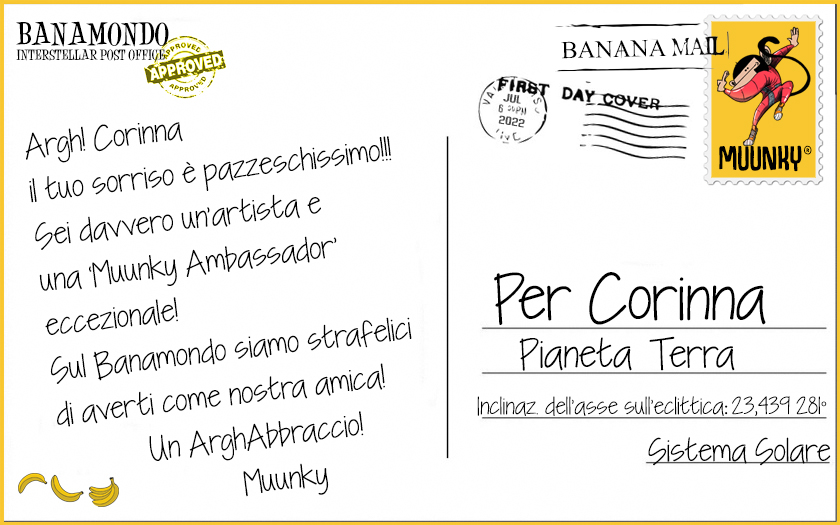 BANAMONDO
INTERSTELLAR POST OFFICE
APPROVED
APPROVED
APPROVED
Argh! Corinna
il tuo sorriso è pazzeschissimo!!!
Sei davvero un'artista e
una 'Muunky Ambassador'
eccezionale!
Sul Banamondo siamo strafelici
di averti come nostra amica!
Un ArghAbbraccio!
Muunky
BANANA MAIL
FIRST DAY COVER
JUL
2022
MUUNKY®
Per Corinna
Pianeta Terra
Inclinaz. dell'asse sull'eclittica: 23,439 281°
Sistema Solare